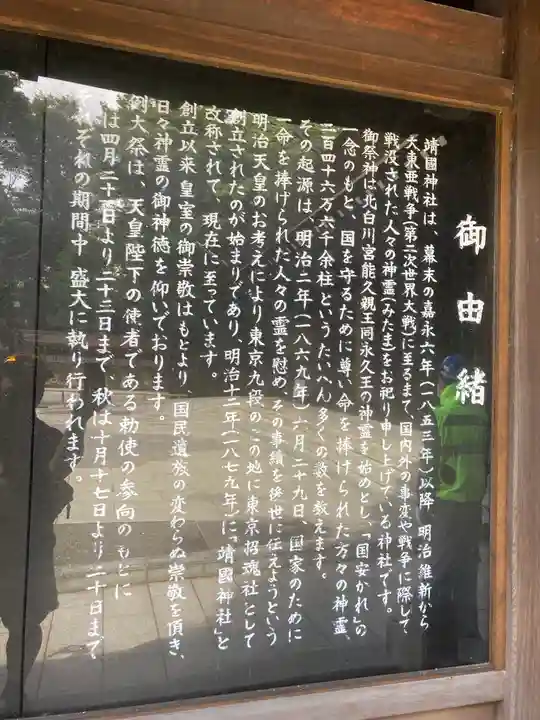 御由緒
靖國神社は、幕末の嘉永六年(一八五三年)以降、明治維新から
大東亜戦争(第二次世界大戦)に至るまで、国内外の事変や戦争に際して
戦没された人々の神霊(みたま)をお祀り申し上げている神社です。
御祭神は北白川宮能久親王同永久王の神霊を始めとし、「国安かれ」の
一念のもと、国を守るために尊い命を捧げられた方々の神霊、
二百四十六万六千余柱というたいへん多くの数を数えます。
その起源は、明治二年(一八六九年)六月二十九日、国家のために
一命を捧げられた人々の霊を慰め、その事績を後世に伝えようという
明治天皇のお考えにより東京九段のこの地に東京招魂社として
創立されたのが始まりであり、明治十二年(一八七九年)に「靖國神社」と
改称されて、現在に至っています。
創立以来皇室の御崇敬はもとより、国民遺族の変わらぬ崇敬を頂き、
日々神霊の御神徳を仰いでおります。
例大祭は、天皇陛下の使者である勅使の参向のもとに
は四月二十一日より二十三日まで、秋は十月十七日より二十日まで
れぞれの期間中盛大に執り行われます。